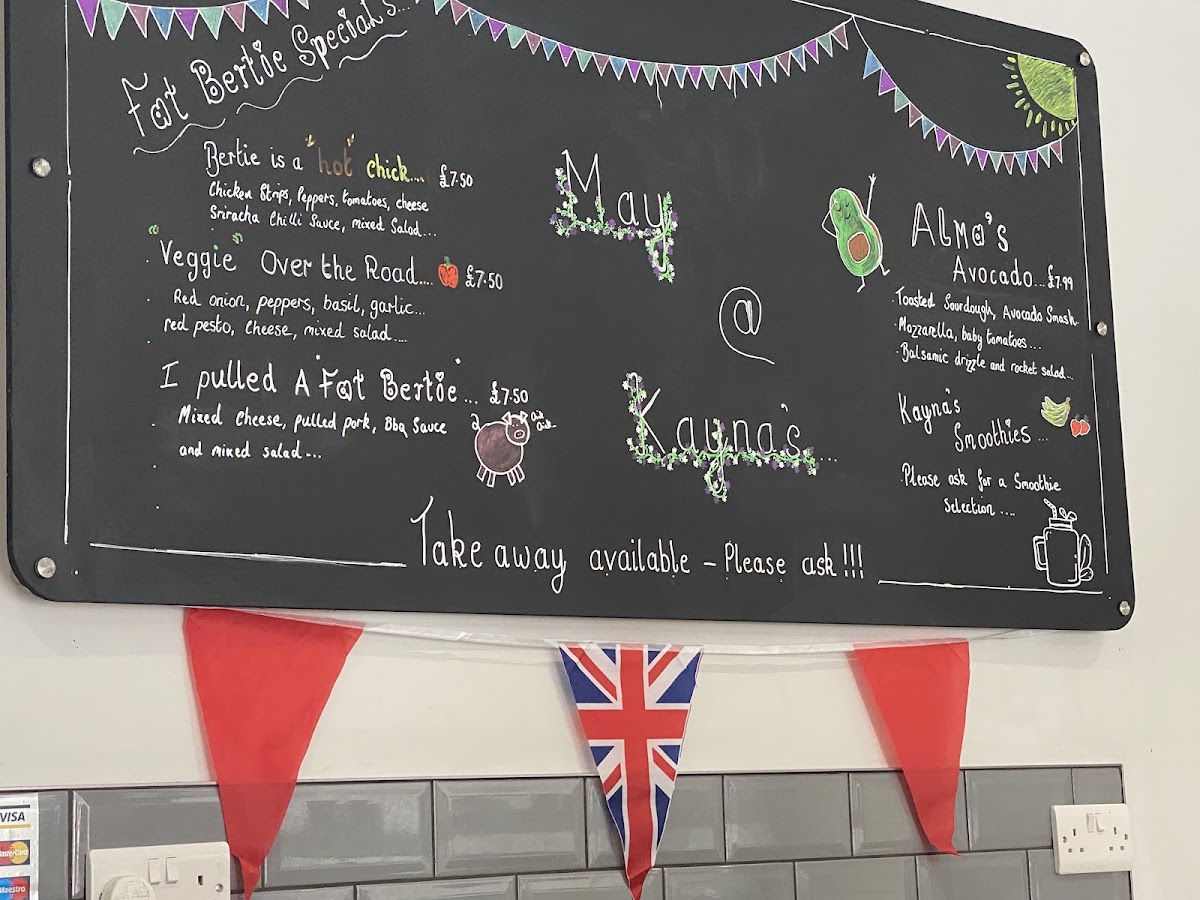 Fat Bertie Special's...
Bertie is a "hot" chick.... £7.50
Chicken Strips, Peppers, tomatoes, cheese
Sriracha Chilli Sauce, mixed Salad...
"Veggie" Over the Road.... £7.50
Red onion, peppers, basil, garlic...
red pesto, cheese, mixed salad....
I pulled A "Fat Bertie"... £7.50
Mixed Cheese, pulled pork, Bbq Sauce
and mixed salad...
May
@
Kayna's...
Alma's
Avocado... £7.99
Toasted Sourdough, Avocado Smash
Mozzarella, baby tomatoes....
Balsamic drizzle and rocket salad...
Kayna's
Smoothies...
Please ask for a Smoothie
Selection ....
Take away available - Please ask!!!
VISA
MasterCard
Maestro